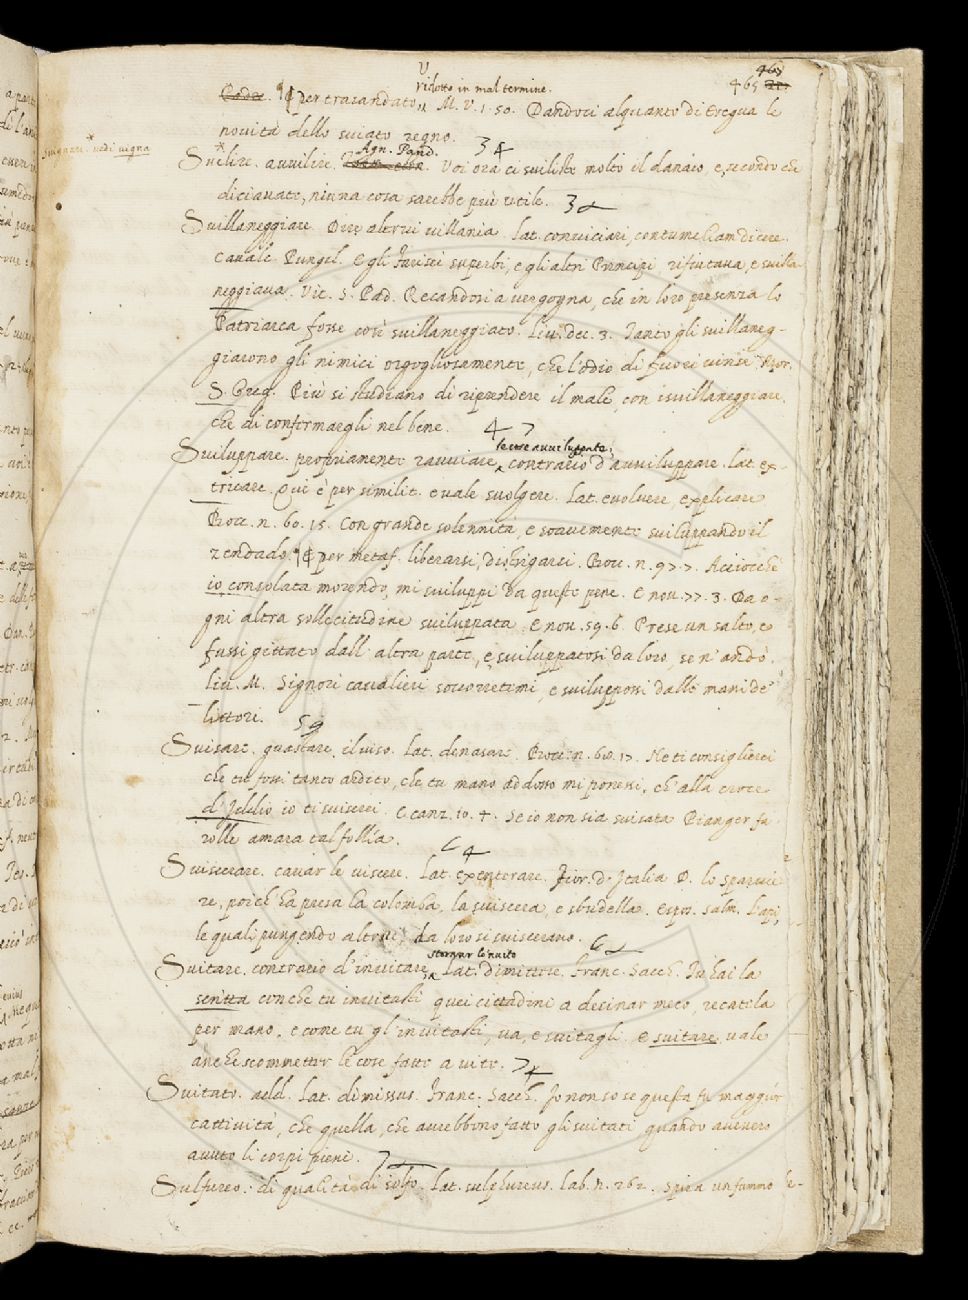 465
ridotto in mal termine.
per trasandato, M. V. 1. 50. Dandoci alquanto di tregua le
novità dello sviato regno.
Svignare. vedi vigna
Agn. Pand.
Svilire. avvilire. Voi ora ci svilite molto il danaio, e, secondo che
diciavate, niuna cosa sarebbe più utile.
Svillaneggiare. Dire altrui villania. Lat. conviciari, contumeliam dicere.
Cavalc. Pungil. E gli Farisei superbi, e gli altri Principi rifiutava, e svilla-
neggiava. Vit. S. Pad. Recandosi a vergogna, che in loro presenza lo
Patriarca fosse così svillaneggiato. Liv. dec. 3. Tanto gli svillaneg-
giarono gli nimici orgogliosamente, che l'odio di fuori vinse. Mor.
S. Greg. Più si studiano di riprendere il male, con isvillaneggiare,
che di confermargli nel bene.
le cose avviluppate,
Sviluppare. propriamente ravviare contrario d'avviluppare. Lat. ex-
tricare. Qui è per similit. e vale svolgere. Lat. evolvere, explicare
Bocc. n. 60. 15. Con grande solennità, e soavemente sviluppando il
zendado. per metaf. liberarsi, distrigarsi. Bocc. n. 97. 7. Acciocchè
io consolata morendo, mi sviluppi da queste pene. E nov. 77. 3. Da o-
gni altra sollecitudine sviluppata. E nov. 59. 6. Prese un salto, e
fussi gittato dall'altra parte, e sviluppatosi da loro, se n'andò.
Liv. M. Signori cavalieri soccorretemi, e sviluppossi dalle mani de'
littori.
Svisare. guastare il viso. Lat. denasare. Bocc. n. 60. 17. Ne ti consiglierei
che tu fossi tanto ardito, che tu mano addosso mi ponessi, ch'alla croce
d'Iddio io ti sviserei. E canz. 10. 4. Se io non sia svisata Pianger fa-
rolle amara tal follia.
Sviscerare. cavar le viscere. Lat. exenterare. Fior. d'Italia D. lo sparvie-
re, poich'ha presa la colomba, la sviscera, e sbudella. Espos. Salm. L'api,
le quali pungendo altrui, da loro si sviscerano.
stornar lo 'nvito
Svitare. contrario d'invitare, Lat. dimittere. Franc. Sacch. Tu hai la
scritta con che tu invitasti quei cittadini a desinar meco, recatela
per mano, e come tu gl'invitasti, va, e svitagli. E svitare vale
anche scommetter le cose fatte a vite.
Svitato. add. Lat. dimissus. Franc. Sacch. Io non so se questa fu maggior
cattività, che quella, che avrebbono fatto gli svitati quando avevero
avuto li corpi pieni.
Sulfureo. di qualità di solfo. Lat. sulphureus. Lab. n. 262. spira un fummo